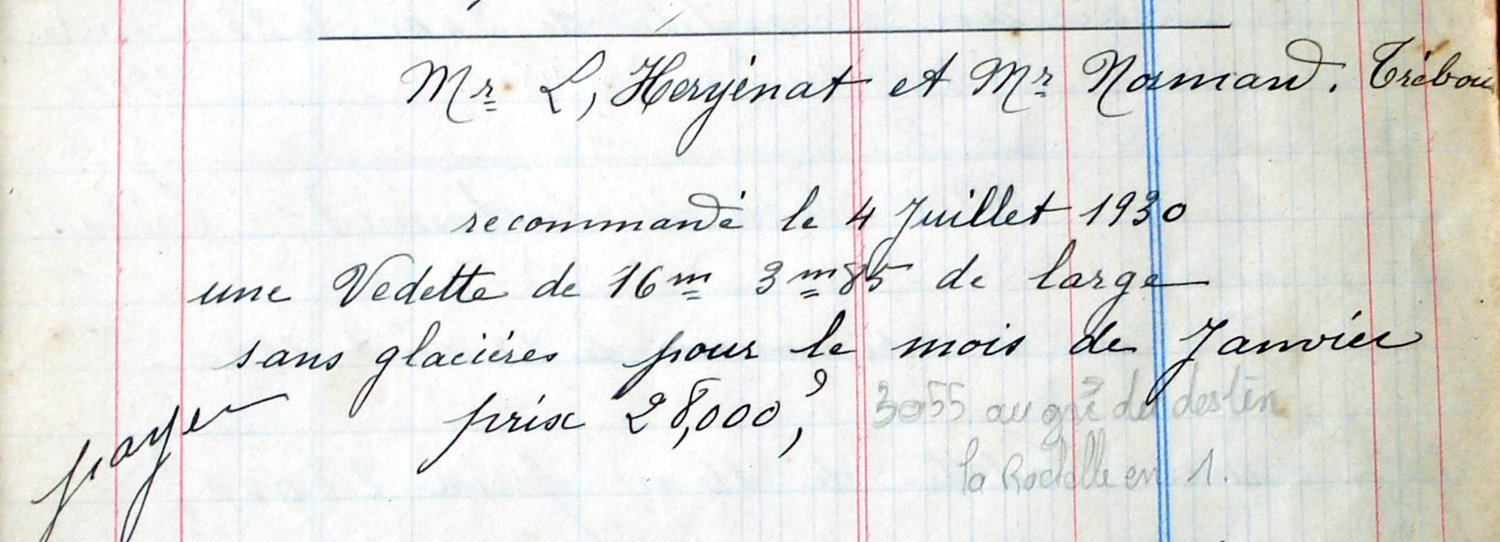 Mr L, Heryénat et Mr Normand. Trébou
recommandé le 4 Juillet 1930
une Vedette de 16m 3m85 de large
sans glacières pour le mois de Janvier
payé prix 28,000,
3055 au gré du destin
la Rochelle en 1.